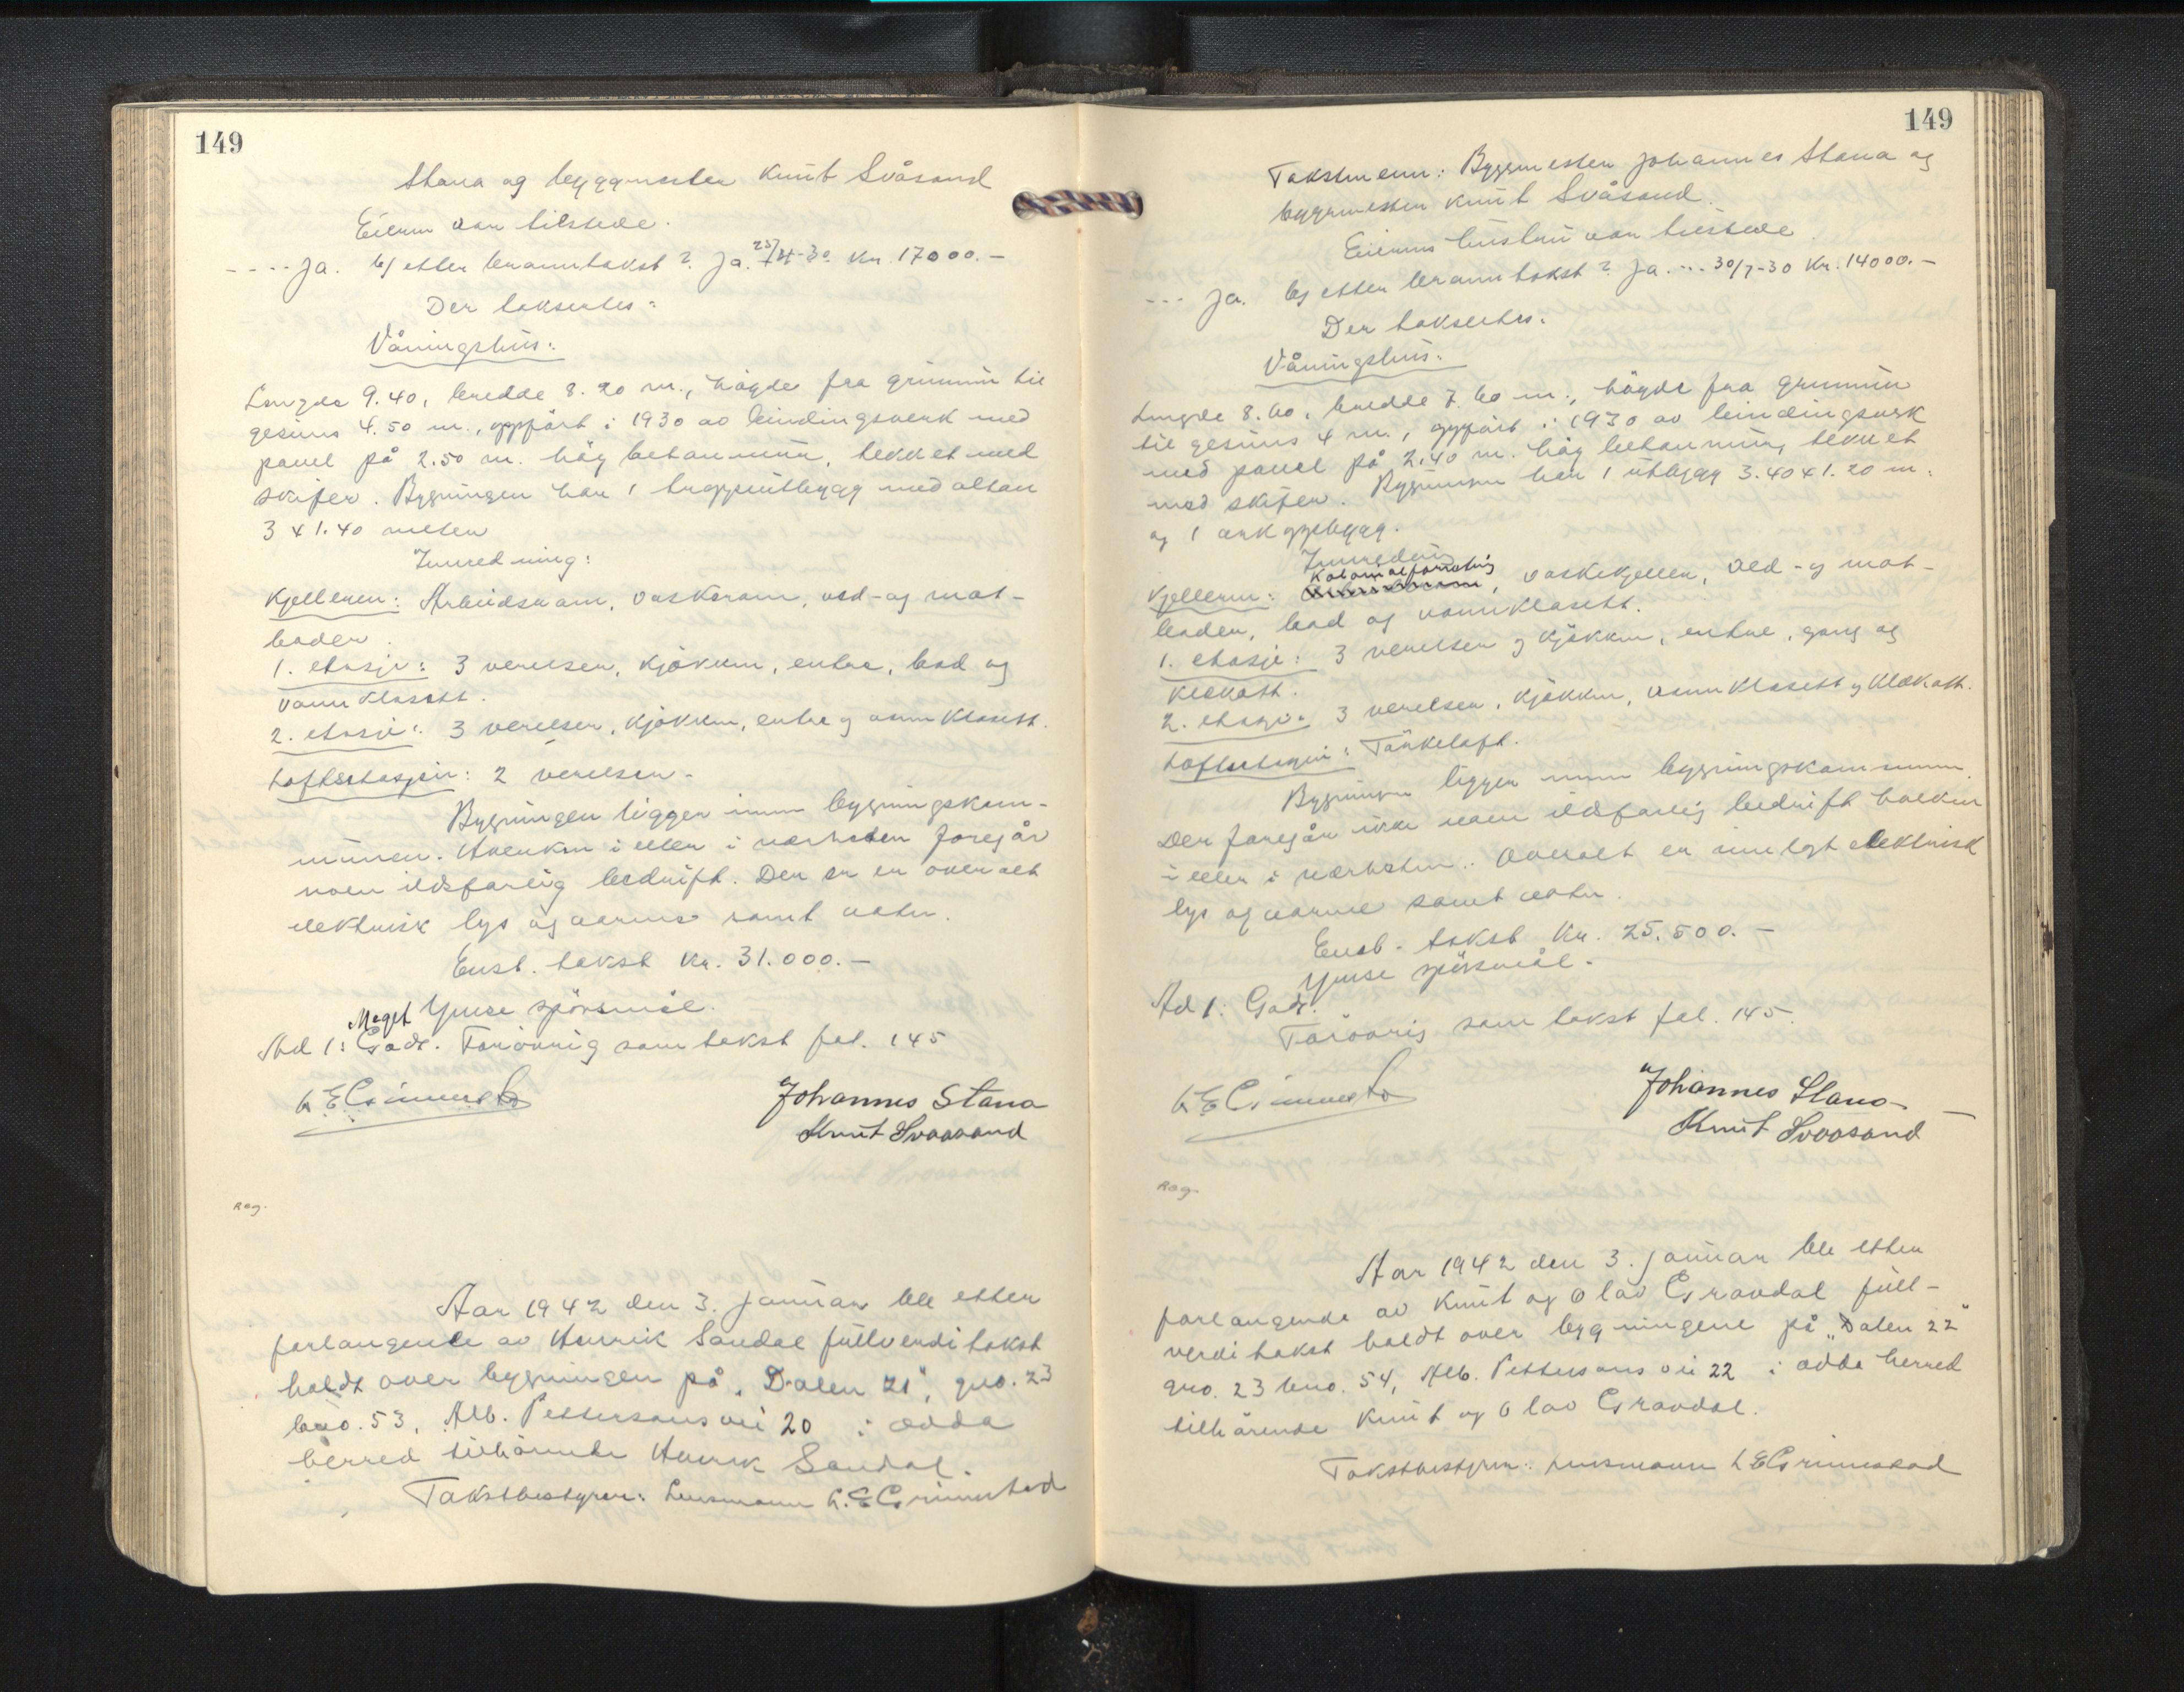 149
Stana og byggmester Knut Svåsand
Eieren var tilstede.
---- Ja. b/ etter branntakst? Ja. 25/4-30 Kr. 17000.-
Der takseertes:
Våningshus:
Lengde 9.40, bredde 8.20 m., høgde fra grunnmur til
gesims 4.50 m., oppført i 1930 av bindingsverk med
panel på 2.50 m. høg betonmur, tekket med
skifer. Bygningen har 1 trappeutbygg med altan
3 x 1.40 meter
Innredning:
Kjelleren: Arbeidsrom, vaskerom, ved- og mat-
boder.
1. etasje: 3 verelser, kjøkken, entre, bad og
vannklosett.
2. etasje: 3 verelser, kjøkken, entre og vannklosett.
Loftsetasjen: 2 verelser.
Bygningen ligger innen bygningskom-
munen. Hverken i eller i nærheten foregår
noen ildsfarlig bedrift. Der er er overalt
elektrisk lys og varme samt vatn.
Enst. takst Kr. 31.000.-
Ymse spörsmål.
Ad 1: Meget Godt. Forövrig som takst fol. 145
L E Grimestad
Johannes Stana
Knut Svaasand
Reg.
Aar 1942 den 3. januar ble etter
forlangende av Henrik Sandal fullverditakst
holdt over bygningen på "Dalen 21", gno. 23
bno. 53, Alb. Pettersons vei 20 i Odda
herred tilhörende Henrik Sandal.
Takstbestyrer: Lensmann L. E Grimestad
149
Takstmenn: Byggmester Johannes Stana og
byggmester Knut Svåsand.
Eierens hustru var tilstede.
--- Ja. b/ etter branntakst? Ja. ... 30/7-30 Kr. 14000.-
Der takseertes:
Våningshus:
Lengde 8.60, bredde 7.60 m., høgde fra grunnmur
til gesims 4 m., oppført i 1930 av bindingsverk
med panel på 2.40 m. høg betonmur, tekket
med skifer. Bygningen har 1 utbygg 3.40 x 1.20 m.
og 1 arkoppbygg.
Innredning
Kjelleren: Kolonialforretning, vaskekjeller, ved- og mat-
boder, bad og vannklosett.
1. etasje: 3 verelser og kjøkken, entre, gang og
klekott.
2. etasje: 3 verelser, kjøkken, vannklosett og klekott.
Loftsetasjen: Tørkeloft.
Bygningen ligger innen bygningskommunen.
Der foregår ikke noen ildsfarlig bedrift hverken
i eller i nærheten. Overalt er innlagt elektrisk
lys og varme samt vatn.
Enst. takst Kr. 25.500.-
Ymse spörsmål.
Ad 1: Godt.
Forövrig som takst fol. 145.
L E Grimestad
Johannes Stana
Knut Svaasand
Reg.
Aar 1942 den 3. januar ble etter
forlangende av Knut og Olav Gravdal full-
verditakst holdt over bygningene på "Dalen 22"
gno. 23 bno. 54, Alb. Pettersons vei 22 i Odda herred
tilhörende Knut og Olav Gravdal.
Takstbestyrer: Lensmann L E Grimestad